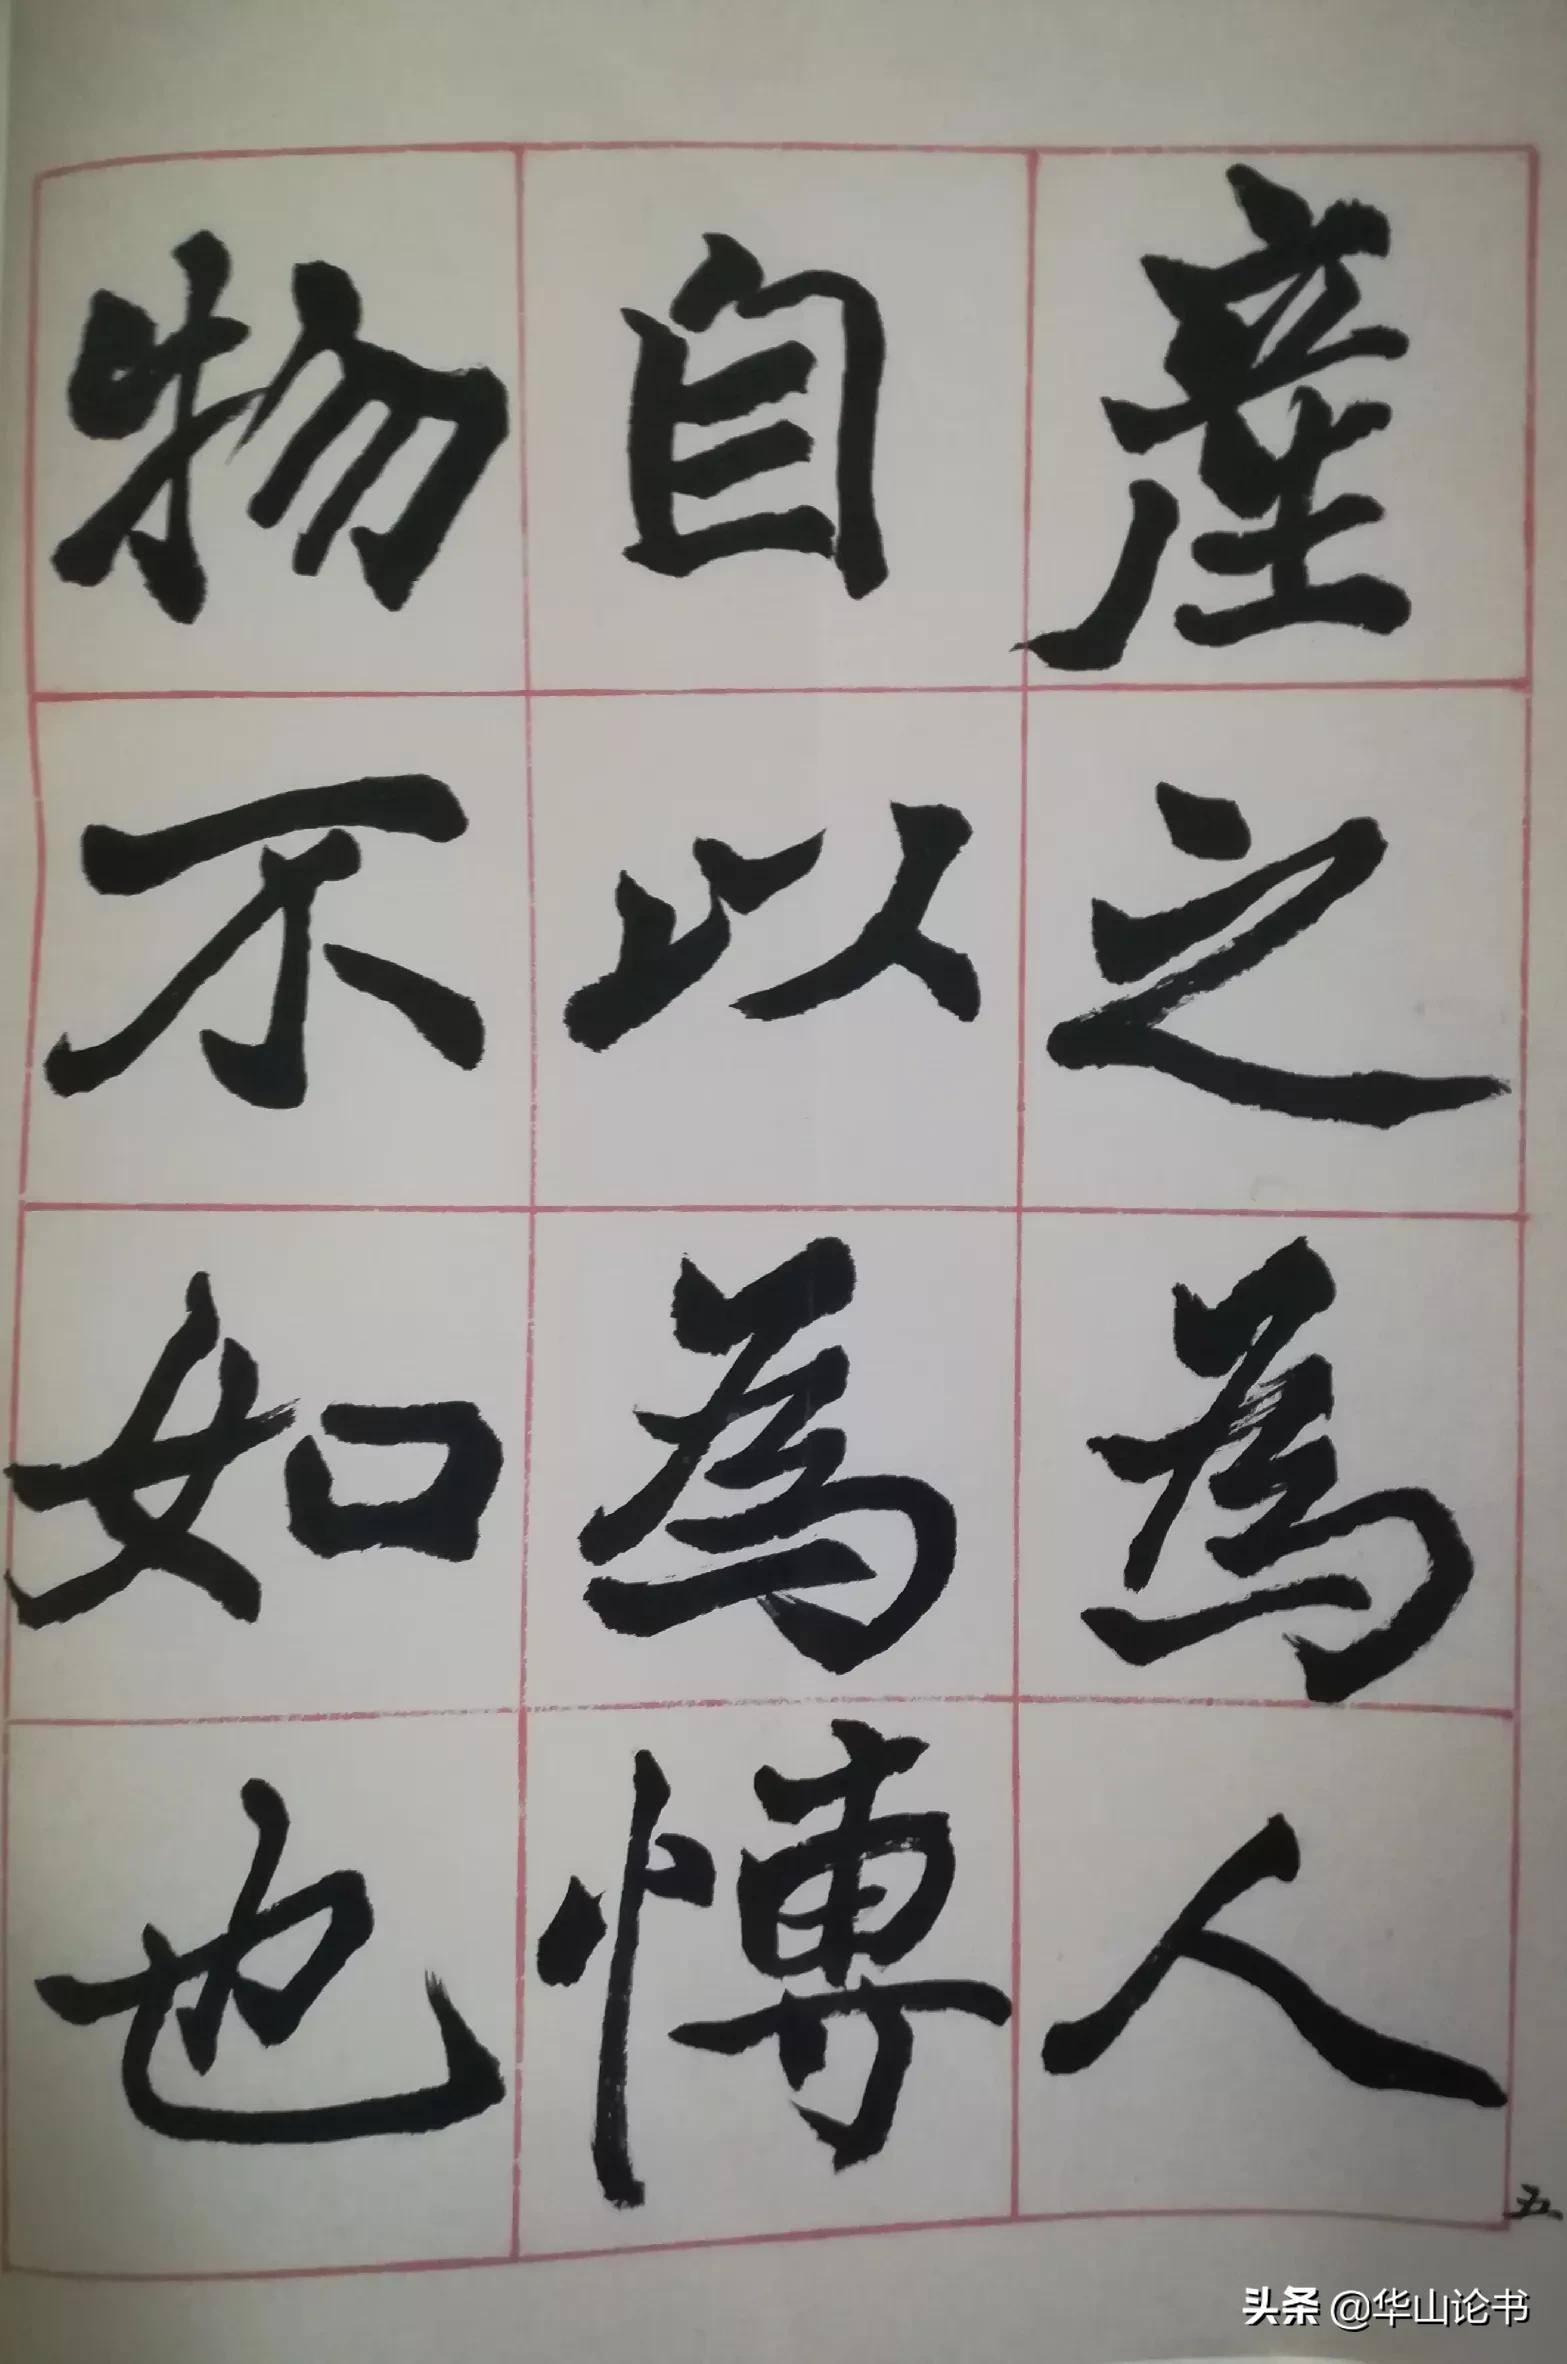 產之為人
自以為博
物不如也
五
头条 @华山论书